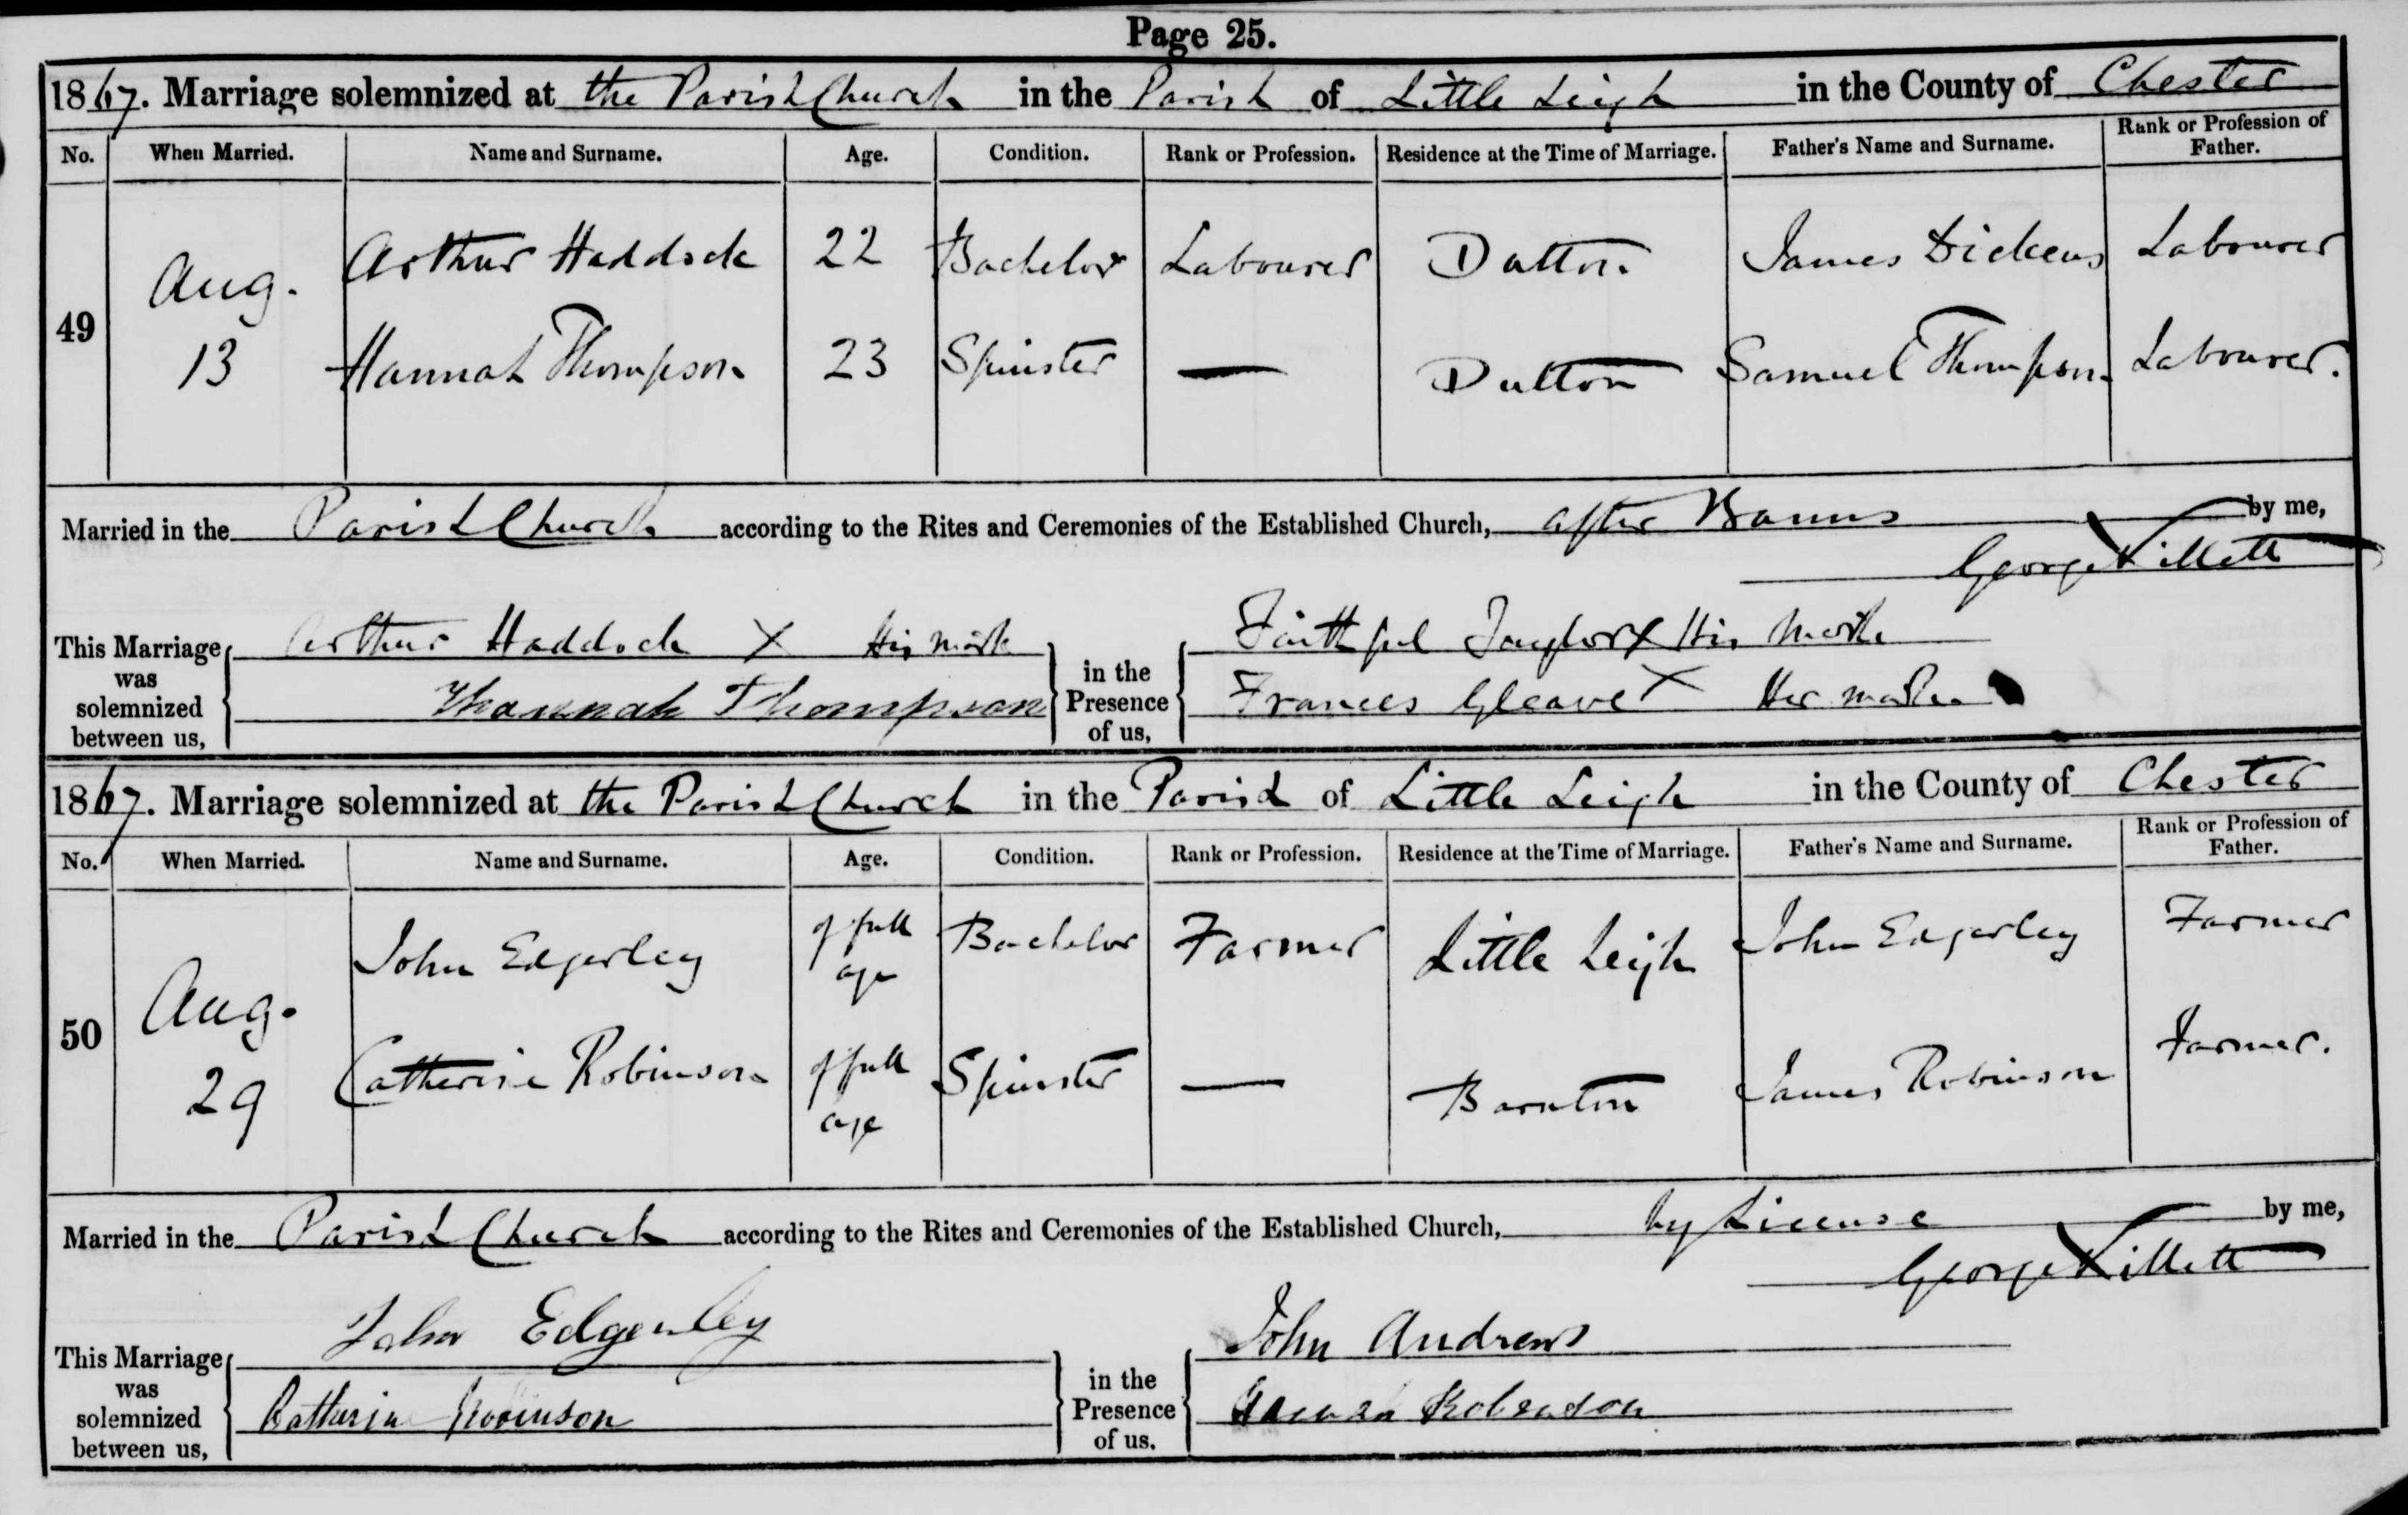 Page 25.
1867. Marriage solemnized at the Parish Church in the Parish of Little Leigh in the County of Chester
No. When Married. Name and Surname. Age. Condition. Rank or Profession. Residence at the Time of Marriage. Father's Name and Surname. Rank or Profession of Father.
49 Aug. 13 Arthur Haddock 22 Bachelor Labourer Dutton James Dickens Labourer
Hannah Thompson 23 Spinster — Dutton Samuel Thompson Labourer.
Married in the Parish Church according to the Rites and Ceremonies of the Established Church, after Banns by me,
George Killett
This Marriage was solemnized between us, Arthur Haddock X His mark in the Presence of us, Faithful Taylor X His mark
Hannah Thompson Frances Gleave X Her mark
1867. Marriage solemnized at the Parish Church in the Parish of Little Leigh in the County of Chester
No. When Married. Name and Surname. Age. Condition. Rank or Profession. Residence at the Time of Marriage. Father's Name and Surname. Rank or Profession of Father.
50 Aug. 29 John Edgerley of full age Bachelor Farmer Little Leigh John Edgerley Farmer
Catherine Robinson of full age Spinster — Barnton James Robinson Farmer.
Married in the Parish Church according to the Rites and Ceremonies of the Established Church, by License by me,
George Killett
This Marriage was solemnized between us, John Edgerley in the Presence of us, John Andrews
Catherine Robinson Robinson